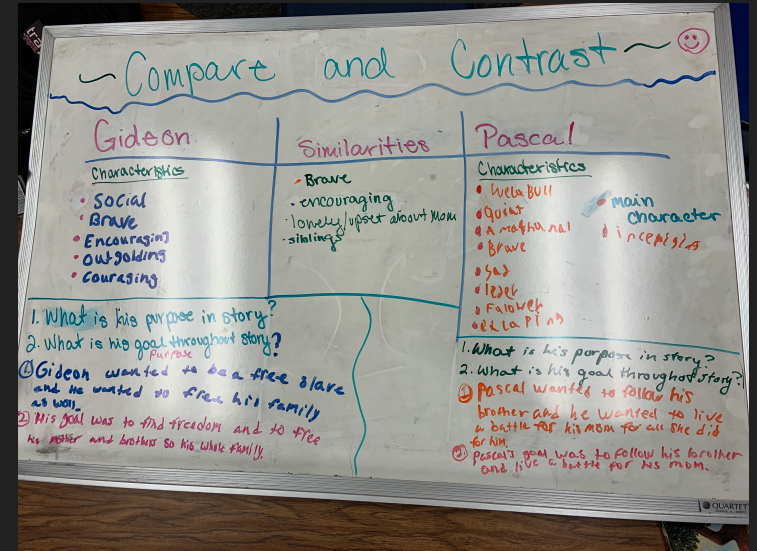 Compare and Contrast
Gideon
Characteristics
Social
Brave
Encouraging
Outgolding
Couraging
Similarities
Brave
encouraging
lonely/upset about Mom
siblings
Pascal
Characteristics
Quiat
Brave
Sad
leder
Falower
main
character
1. What is his purpose in story?
2. What is his goal throughout story?
Purpose
1 Gideon wanted to be a free slave
and he wanted to free his family
as well.
2 His goal was to find freedom and to free
his mother and brothers so his whole family.
1. What is his porpose in story?
2. What is his goal throughout story?
1 Pascal wanted to follow his
brother and he wanted to live
a battle for his mom for all she did
for him.
2 Pascal's goal was to follow his brother
and live a battle for his mom.
QUARTET